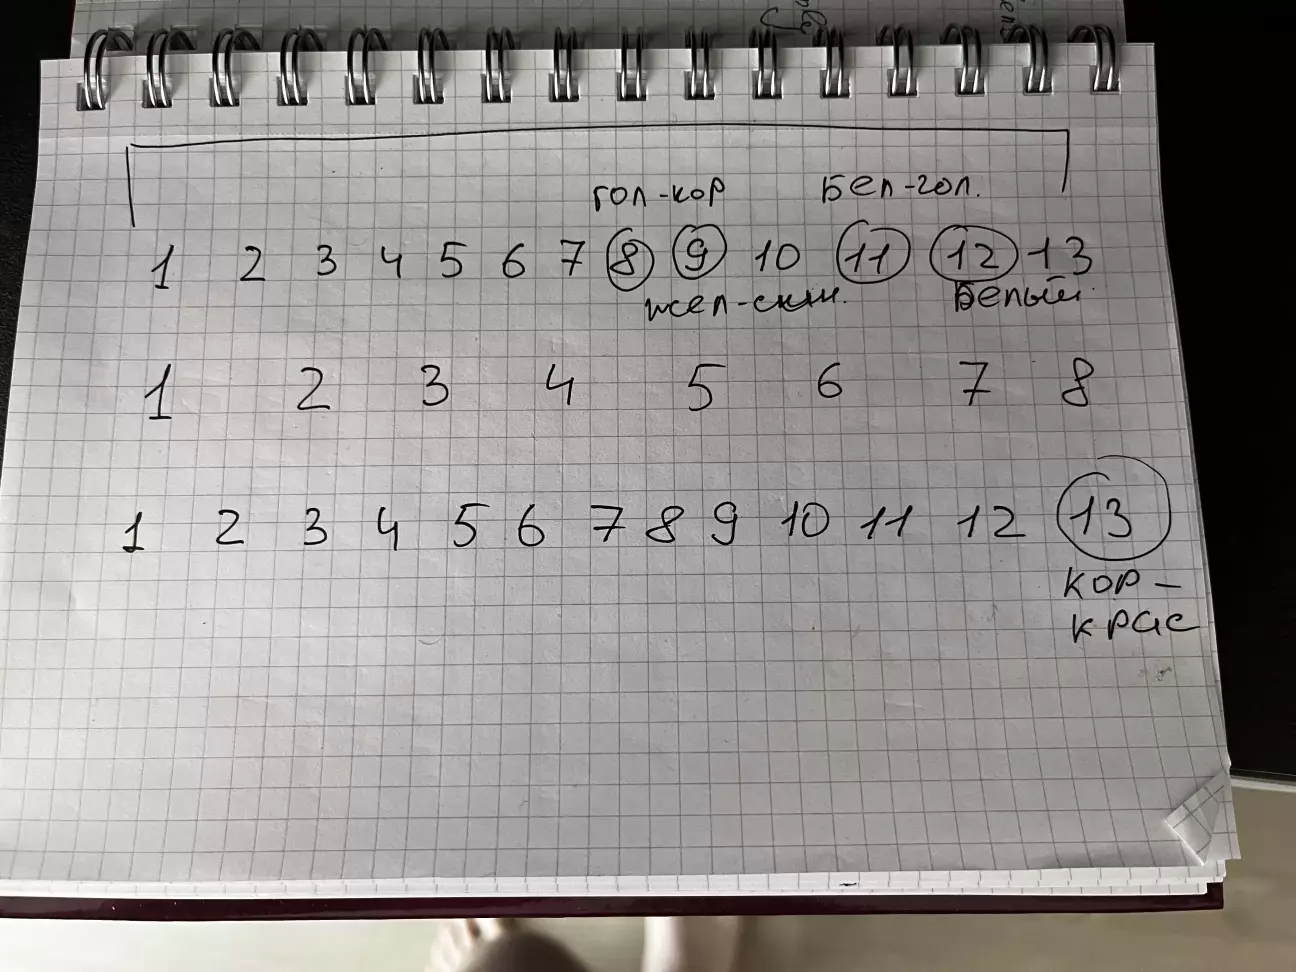 гол-кор Бел-гол.
1 2 3 4 5 6 7 8 9 10 11 12 13
жел-син. Белый
1 2 3 4 5 6 7 8
1 2 3 4 5 6 7 8 9 10 11 12 13
кор-
крас